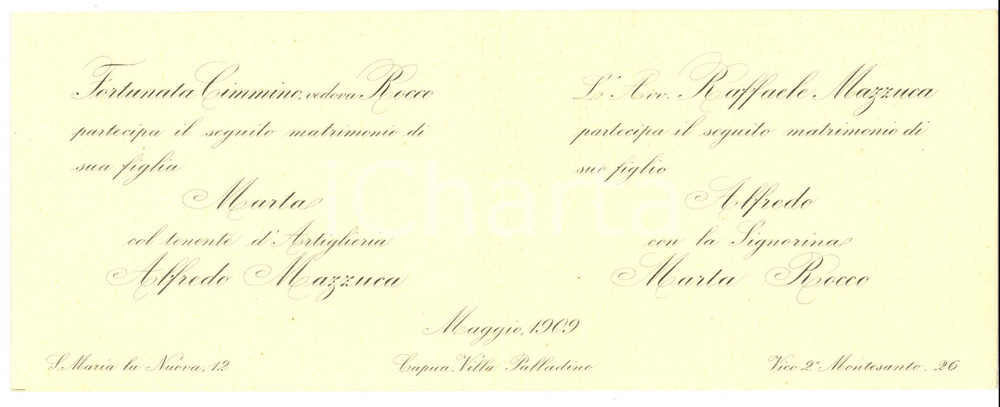 Fortunata Cimmino, vedova Rocco
partecipa il seguito matrimonio di
sua figlia
Marta
col tenente d'Artiglieria
Alfredo Mazzuca
L'Avv. Raffaele Mazzuca
partecipa il seguito matrimonio di
suo figlio
Alfredo
con la Signorina
Marta Rocco
Maggio, 1909
S. Maria la Nuova, 12
Capua. Villa Palladino
Vico 2º Montesanto. 26
iCharta